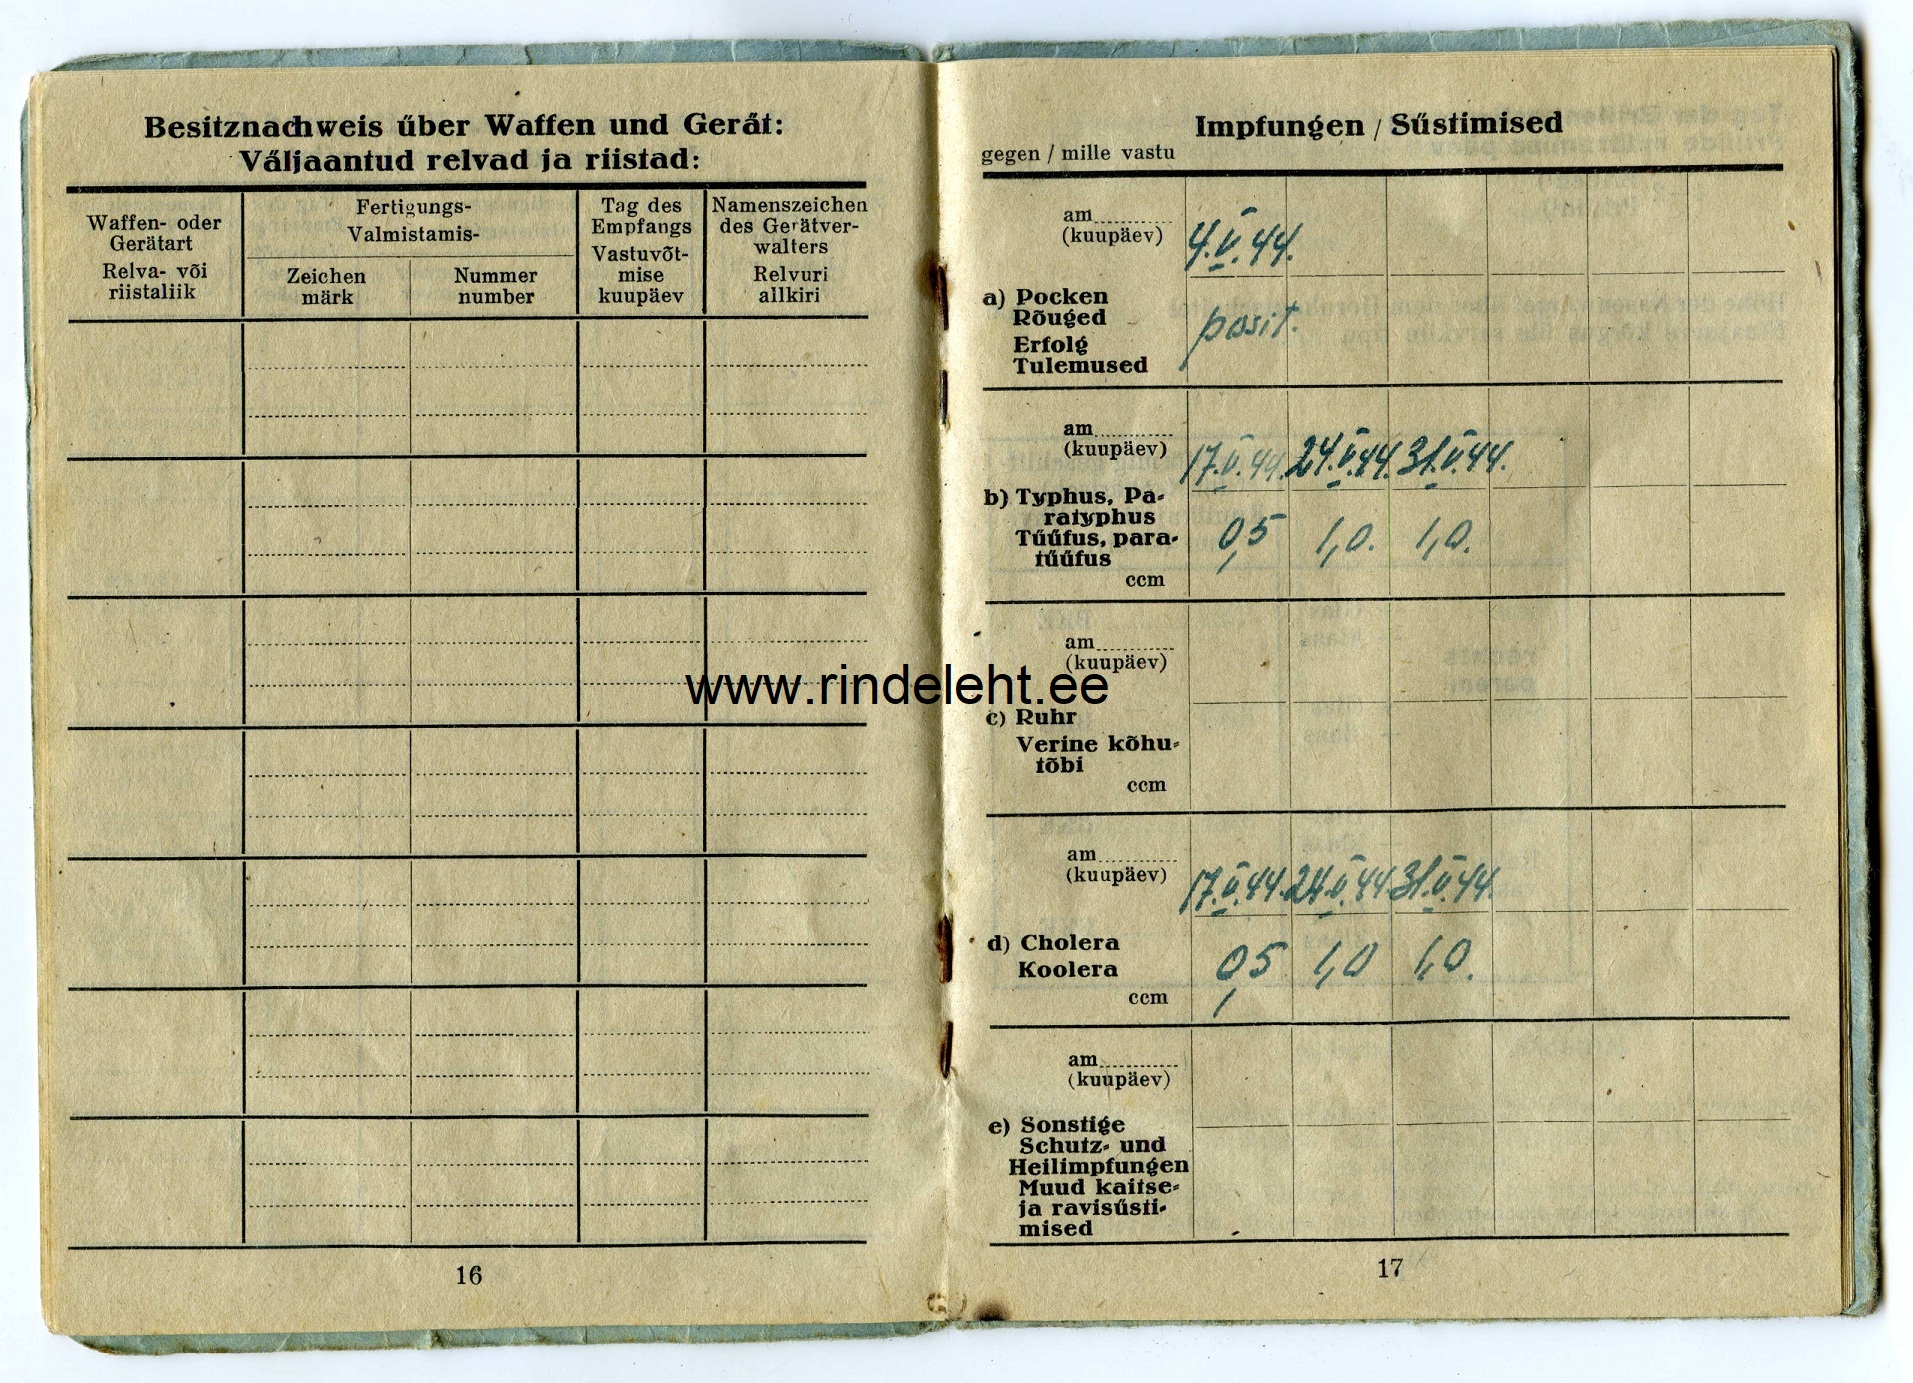 Besitznachweis über Waffen und Gerät:
Väljaantud relvad ja riistad:
Waffen- oder
Gerätart
Relva- või
riistaliik
Fertigungs-
Valmistamis-
Zeichen
märk
Nummer
number
Tag des
Empfangs
Vastuvõt-
mise
kuupäev
Namenszeichen
des Gerätver-
walters
Relvuri
allkiri
16
Impfungen / Süstimised
gegen / mille vastu
am
(kuupäev)
4.V.44.
a) Pocken
Rõuged
Erfolg
Tulemused
posit.
am
(kuupäev)
17.V.44. 24.V.44. 31.V.44.
b) Typhus, Pa-
ratyphus
Tüüfus, para-
tüüfus
ccm
0,5 1,0. 1,0.
am
(kuupäev)
c) Ruhr
Verine kõhu-
tõbi
ccm
am
(kuupäev)
17.V.44. 24.V.44. 31.V.44.
d) Cholera
Koolera
ccm
0,5 1,0 1,0.
am
(kuupäev)
e) Sonstige
Schutz- und
Heilimpfungen
Muud kaitse-
ja ravisüsti-
mised
17
www.rindeleht.ee